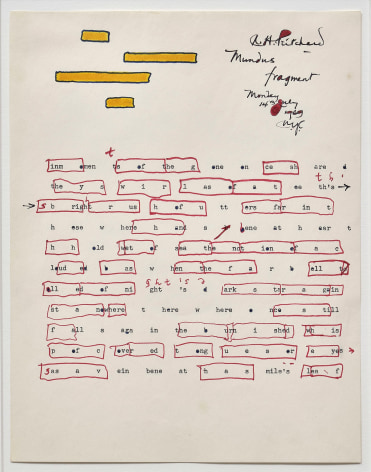 N.H. Pritchard
Mundus
fragment
Monday
14th July
NYC
t
inm omen ts of the g one on ca sh are d
the y s w i r l as of a t ea th's →
→ s b righ t r us h of u tt ers far in t
h ese w here h and s bene at hear t
h h old wet of sea the not ion of a c
loud ed b as w hen the f a r b ell to
ll ed of mi ght 's d ark s tar s gain
st a nowhere t here w here o nce s till
f all s aga in the b urn i shed wh is
p of c over ed t ong u es or e yes →
sas a v ein bene at h as mile's les f